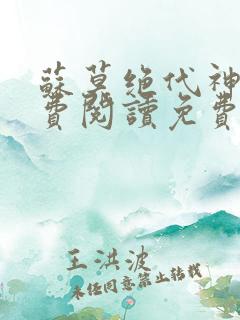 蘇莫绝代神
費閱讀免費
王洪波
未经同意禁止转载